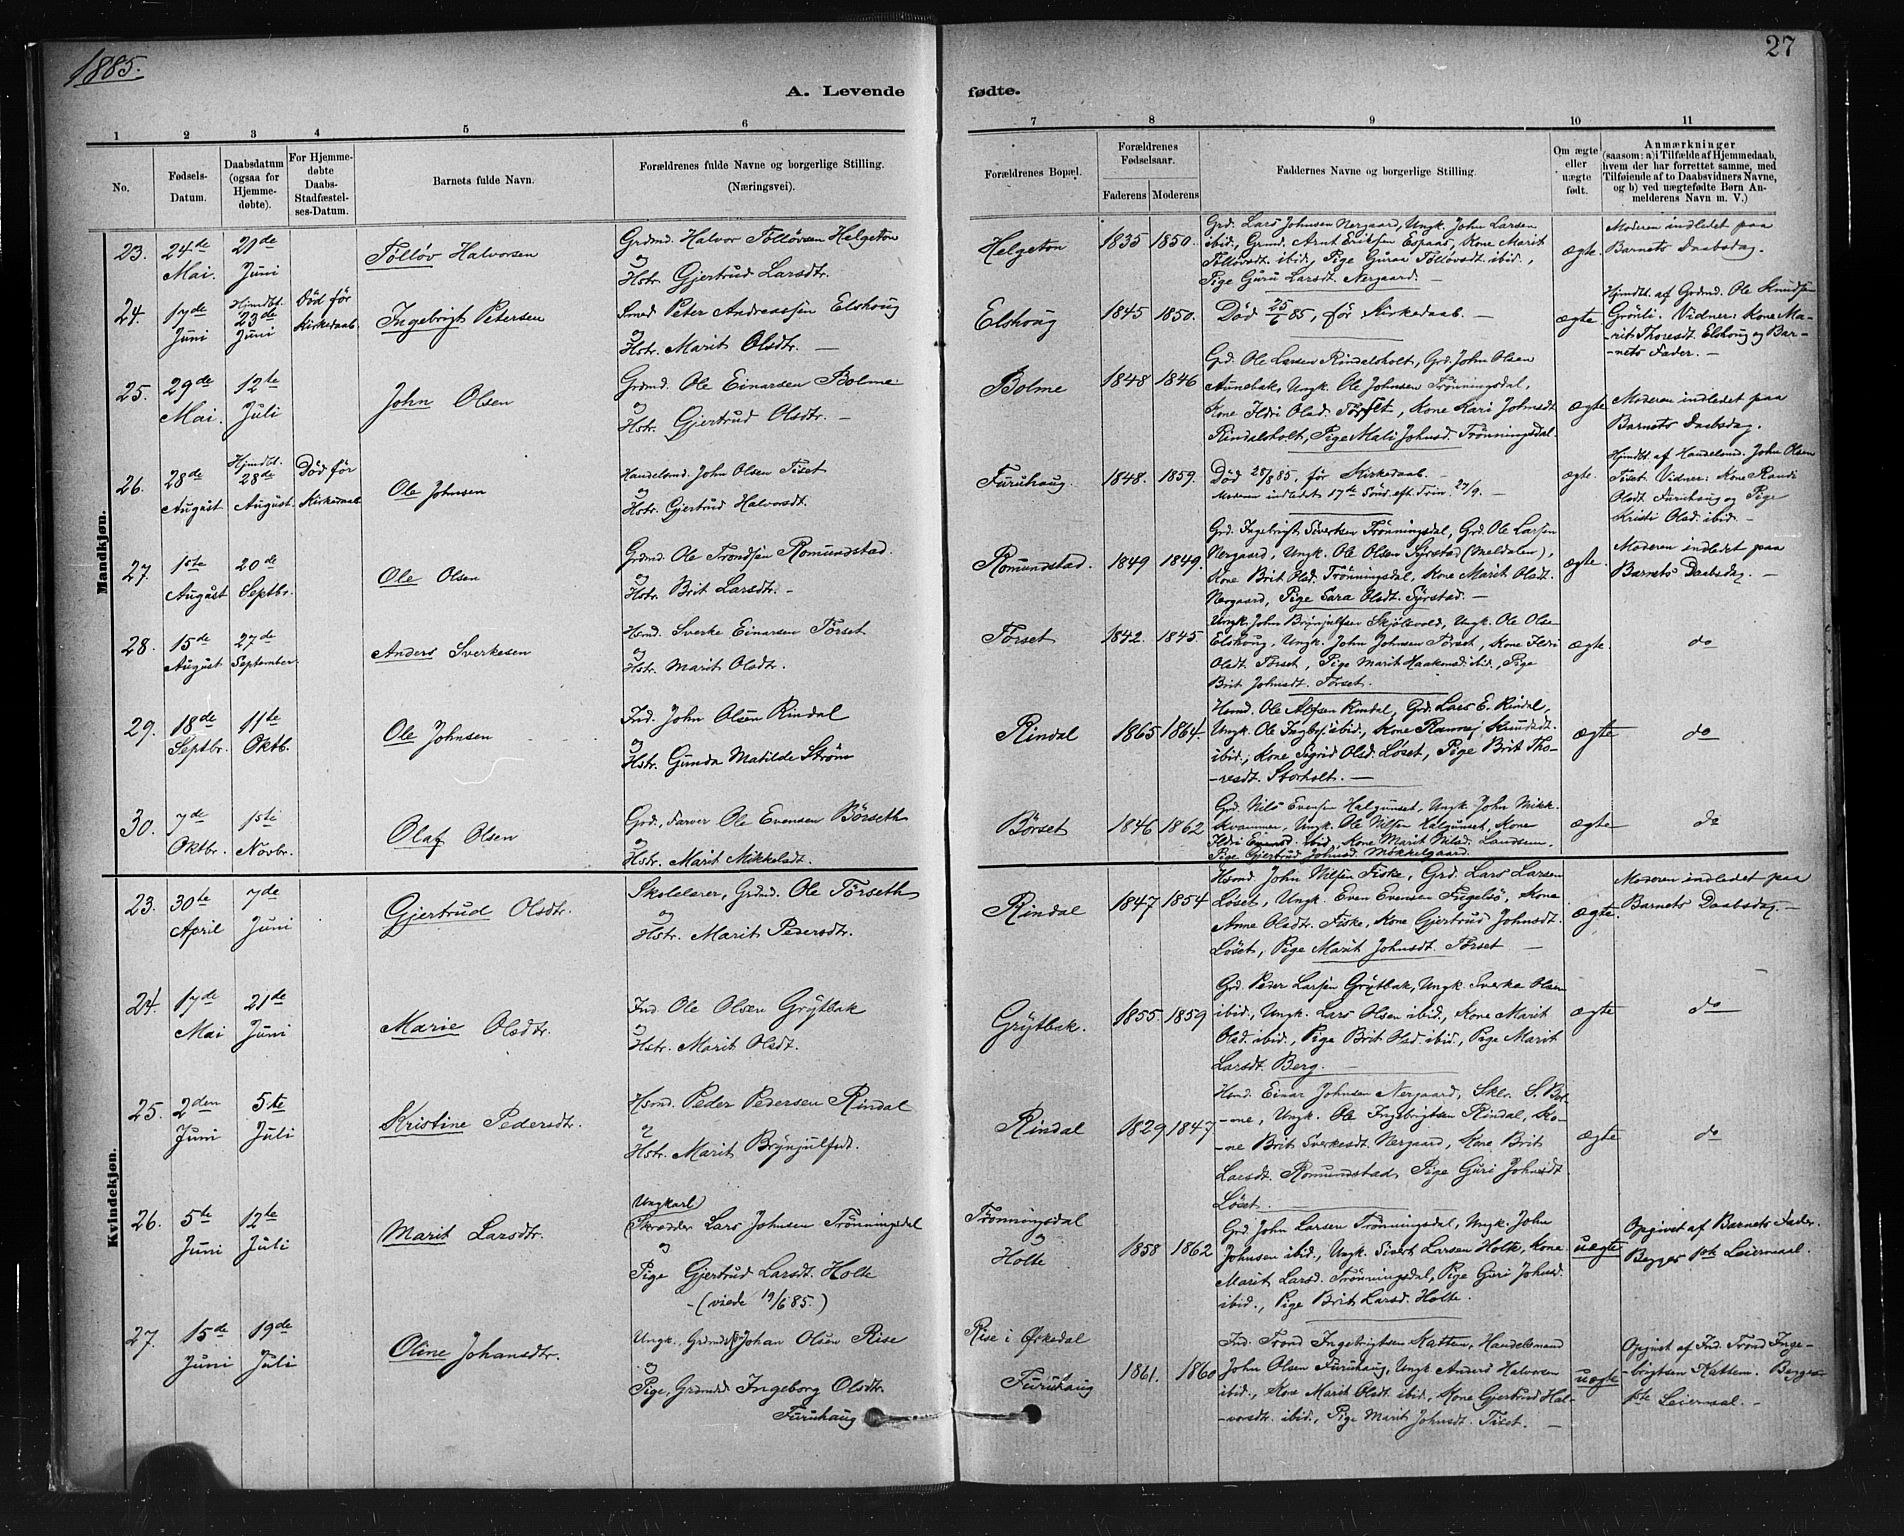 1885.
27
A. Levende fødte.
1 2 3 4 5 6 7 8 9 10 11
No.
Fødsels-Datum.
Daabsdatum (ogsaa for Hjemme-døbte).
For Hjemme-døbte Daabs-Stadfæstel-ses-Datum.
Barnets fulde Navn.
Forældrenes fulde Navne og borgerlige Stilling. (Næringsvei).
Forældrenes Bopæl.
Forældrenes Fødselsaar.
Faderens Moderens
Faddernes Navne og borgerlige Stilling.
Om ægte eller uægte født.
Anmærkninger
(saasom: a) i Tilfælde af Hjemmedaab, hvem der har forrettet samme, med Tilføiende af to Daabsvidners Navne, og b) ved uægtefødte Børn Anmelderens Navn m. V.)
Mandkjøn.
23. 24de Mai. 21de Juni
Tølløv Halvorsen
Grdmd. Halvor Tølløvsen Helgeton
og
Hstr. Gjertrud Larsdtr.
Helgeton 1835 1850.
Grd. Lars Johnsen Nergaard, Ungk. John Larsen
ibid., Grmd. Arnt Eriksen Espaas, Kone Marit
Tølløvsdt. ibid., Pige Guru Tølløvsdt. ibid.,
Pige Guru Larsdt. Nergaard.
ægte.
Moderen indledet paa
Barnets Daabsdag.
24. 17de Juni Hjmdbt. 23de Juni Død før Kirkedaab
Ingebrigt Petersen
Smed Peter Andreassen Elshoug
og
Hstr. Marit Olsdtr. —
Elshoug 1845 1850.
Død 25/6 85, før Kirkedaab. —
ægte
Hjmdbt. af Grdmd. Ole Knudsen
Grønli. Vidner: Kone Ma-
rit Thoresdt. Elshoug og Bar-
-nets Fader. —
25. 29de Mai. 12te Juli
John Olsen
Grdmd. Ole Einarsen Bolme
og
Hstr. Gjertrud Olsdtr. —
Bolme 1848 1846
Grd. Ole Larsen Rindalsholt, Grd. John Olsen
Aunebak, Ungk. Ole Johnsen Trønningsdal,
Kone Ildri Olsd. Tørset, Kone Kari Johnsdt.
Rindalsholt, Pige Mali Johnsd. Trønningsdal.
ægte.
Moderen indledet paa
Barnets Daabsdag.
26. 28de August Hjmdbt. 28de August. Død før Kirkedaab
Ole Johnsen
Handelsmd. John Olsen Tiset
og
Hstr. Gjertrud Halvorsdt.
Furuhaug. 1848. 1859.
Død 28/8 85, før Kirkedaab. —
Moderen indledet 17te Sønd. eft. Trin. 27/9. —
ægte.
Hjmdbt. af Handelsmd. John Olsen
Tiset. Vidner: Kone Randi
Olsdt. Furuhaug og Pige
Kristi Olsd. ibid. —
27. 1ste August 20de Septbr.
Ole Olsen
Grdmd. Ole Trondsen Romundstad.
og
Hstr. Brit Larsdtr. —
Romundstad. 1849 1849.
Grd. Ingebrigt Sivertsen Trønningsdal, Grd. Ole Larsen
Nergaard, Ungk. Ole Olsen Syrstad (Meldalen),
Kone Brit Olsd. Trønningsdal, Kone Marit Olsdt.
Nergaard, Pige Sara Olsdt. Syrstad. —
ægte.
Moderen indledet paa
Barnets Daabsdag. —
28. 15de August 27de September.
Anders Sverkesen
Hsmd. Sverke Einarsen Tørset
og
Hstr. Marit Olsdt.
Tørset 1842. 1845
Ungk. John Brynjulfsen Skjølsvold, Ungk. Ole Olsen
Elshoug, Ungk. John Johnsen Tørset, Kone Ildri
Olsdt. Tørset, Pige Marit Haakensd. ibid., Pige
Brit Johnsdt. Tørset.
ægte.
do
29. 18de Septbr. 11te Oktb.
Ole Johnsen
Ind. John Olsen Rindal
og
Hstr. Gunda Matilde Strøm
Rindal 1865 1864
Hsmd. Ole Alfsen Rindal, Grd. Lars E. Rindal,
Ungk. Ole Ingbrs. ibid., Kone Knudsdt.
ibid., Kone Sigrid Olsd. Løset, Pige Brit Tho-
-resdt. Storholt. —
ægte
do
30. 7de Oktbr. 1ste Novbr.
Olaf Olsen
Grd., Farver Ole Evensen Børseth
og
Hstr. Marit Mikkelsdt.
Børset 1846 1862
Grd. Nils Evensen Halgunset, Ungk. John Mikk.
Kvammen, Ungk. Ole Nilsen Halgunset, Kone
Ildri Evensd. ibid., Kone Marit Nilsd. Landsem,
Pige Gjertrud Johnsd. Mokkelgaard.
ægte
do
Kvindekjøn.
23. 30te April 7de Juni
Gjertrud Olsdtr.
Skolelærer, Grdmd. Ole Tørseth
og
Hstr. Marit Pedersdtr.
Rindal 1847 1854
Hsmd. John Nilsen Fiske, Grd. Lars Larsen
Løset, Ungk. Even Evensen Fugelsø, Kone
Anne Olsdtr. Fiske, Kone Gjertrud Johnsdt.
Løset, Pige Marit Johnsdt. Tørset —
ægte.
Moderen indledet paa
Barnets Daabsdag. —
24. 17de Mai 21de Juni
Marie Olsdtr.
Ind. Ole Olsen Grytbak
og
Hstr. Marit Olsdt.
Grytbak. 1855. 1859
Grd. Peder Larsen Grytbak, Ungk. Sverke Olsen
ibid., Ungk. Lars Olsen ibid., Kone Marit
Olsd. ibid., Pige Brit Olsd. ibid., Pige Marit
Larsdt. Berg. —
ægte
do
25. 2den Juni 5te Juli
Kristine Pedersdtr.
Hsmd. Peder Pedersen Rindal
og
Hstr. Marit Brynjulfsdt.
Rindal 1829 1847
Hsmd. Einar Johnsen Nergaard, Sklr. S. Bol-
-me, Ungk. Ole Ingebrigtsen Rindal, Ko-
-ne Brit Sverkesdt. Nergaard, Kone Brit
Larsdt. Romundstad, Pige Guri Johnsdt.
Løset.
ægte
do
26. 5te Juni 12te Juli
Marit Larsdtr.
Ungkarl
Skrædder Lars Johnsen Trønningsdal
og
Pige Gjertrud Larsdt. Holte
- (viede 19/6 85.)
Trønningsdal
og
Holte
1858 1862
Grd. John Larsen Trønningsdal, Ungk. John
Johnsen ibid., Ungk. Sivert Larsen Holte, Kone
Marit Larsd. Trønningsdal, Pige Guri Johnsd.
ibid., Pige Brit Larsd. Holte.
uægte
Opgivet af Barnets Fader.
Begges 1ste Leiermaal.
27. 15de Juni 19de Juli
Oline Johansdtr.
Ungk. Grdmds. Johan Olsen Rise
og
Pige, Grdmdd. Ingeborg Olsdtr.
Furuhaug
Rise i Ørkedal
Furuhaug
1861. 1860
Ind. Trond Ingebrigtsen Kattem, Handelsmand
John Olsen Furuhaug, Ungk. Anders Halvorsen
ibid., Kone Marit Olsdt. ibid., Kone Gjertrud Hal-
-vorsdtr. ibid., Pige Marit Johnsdt. Tiset. —
uægte
Opgivet af Ind. Trond Inge-
-brigtsen Kattem. Begges
1ste Leiermaal. —